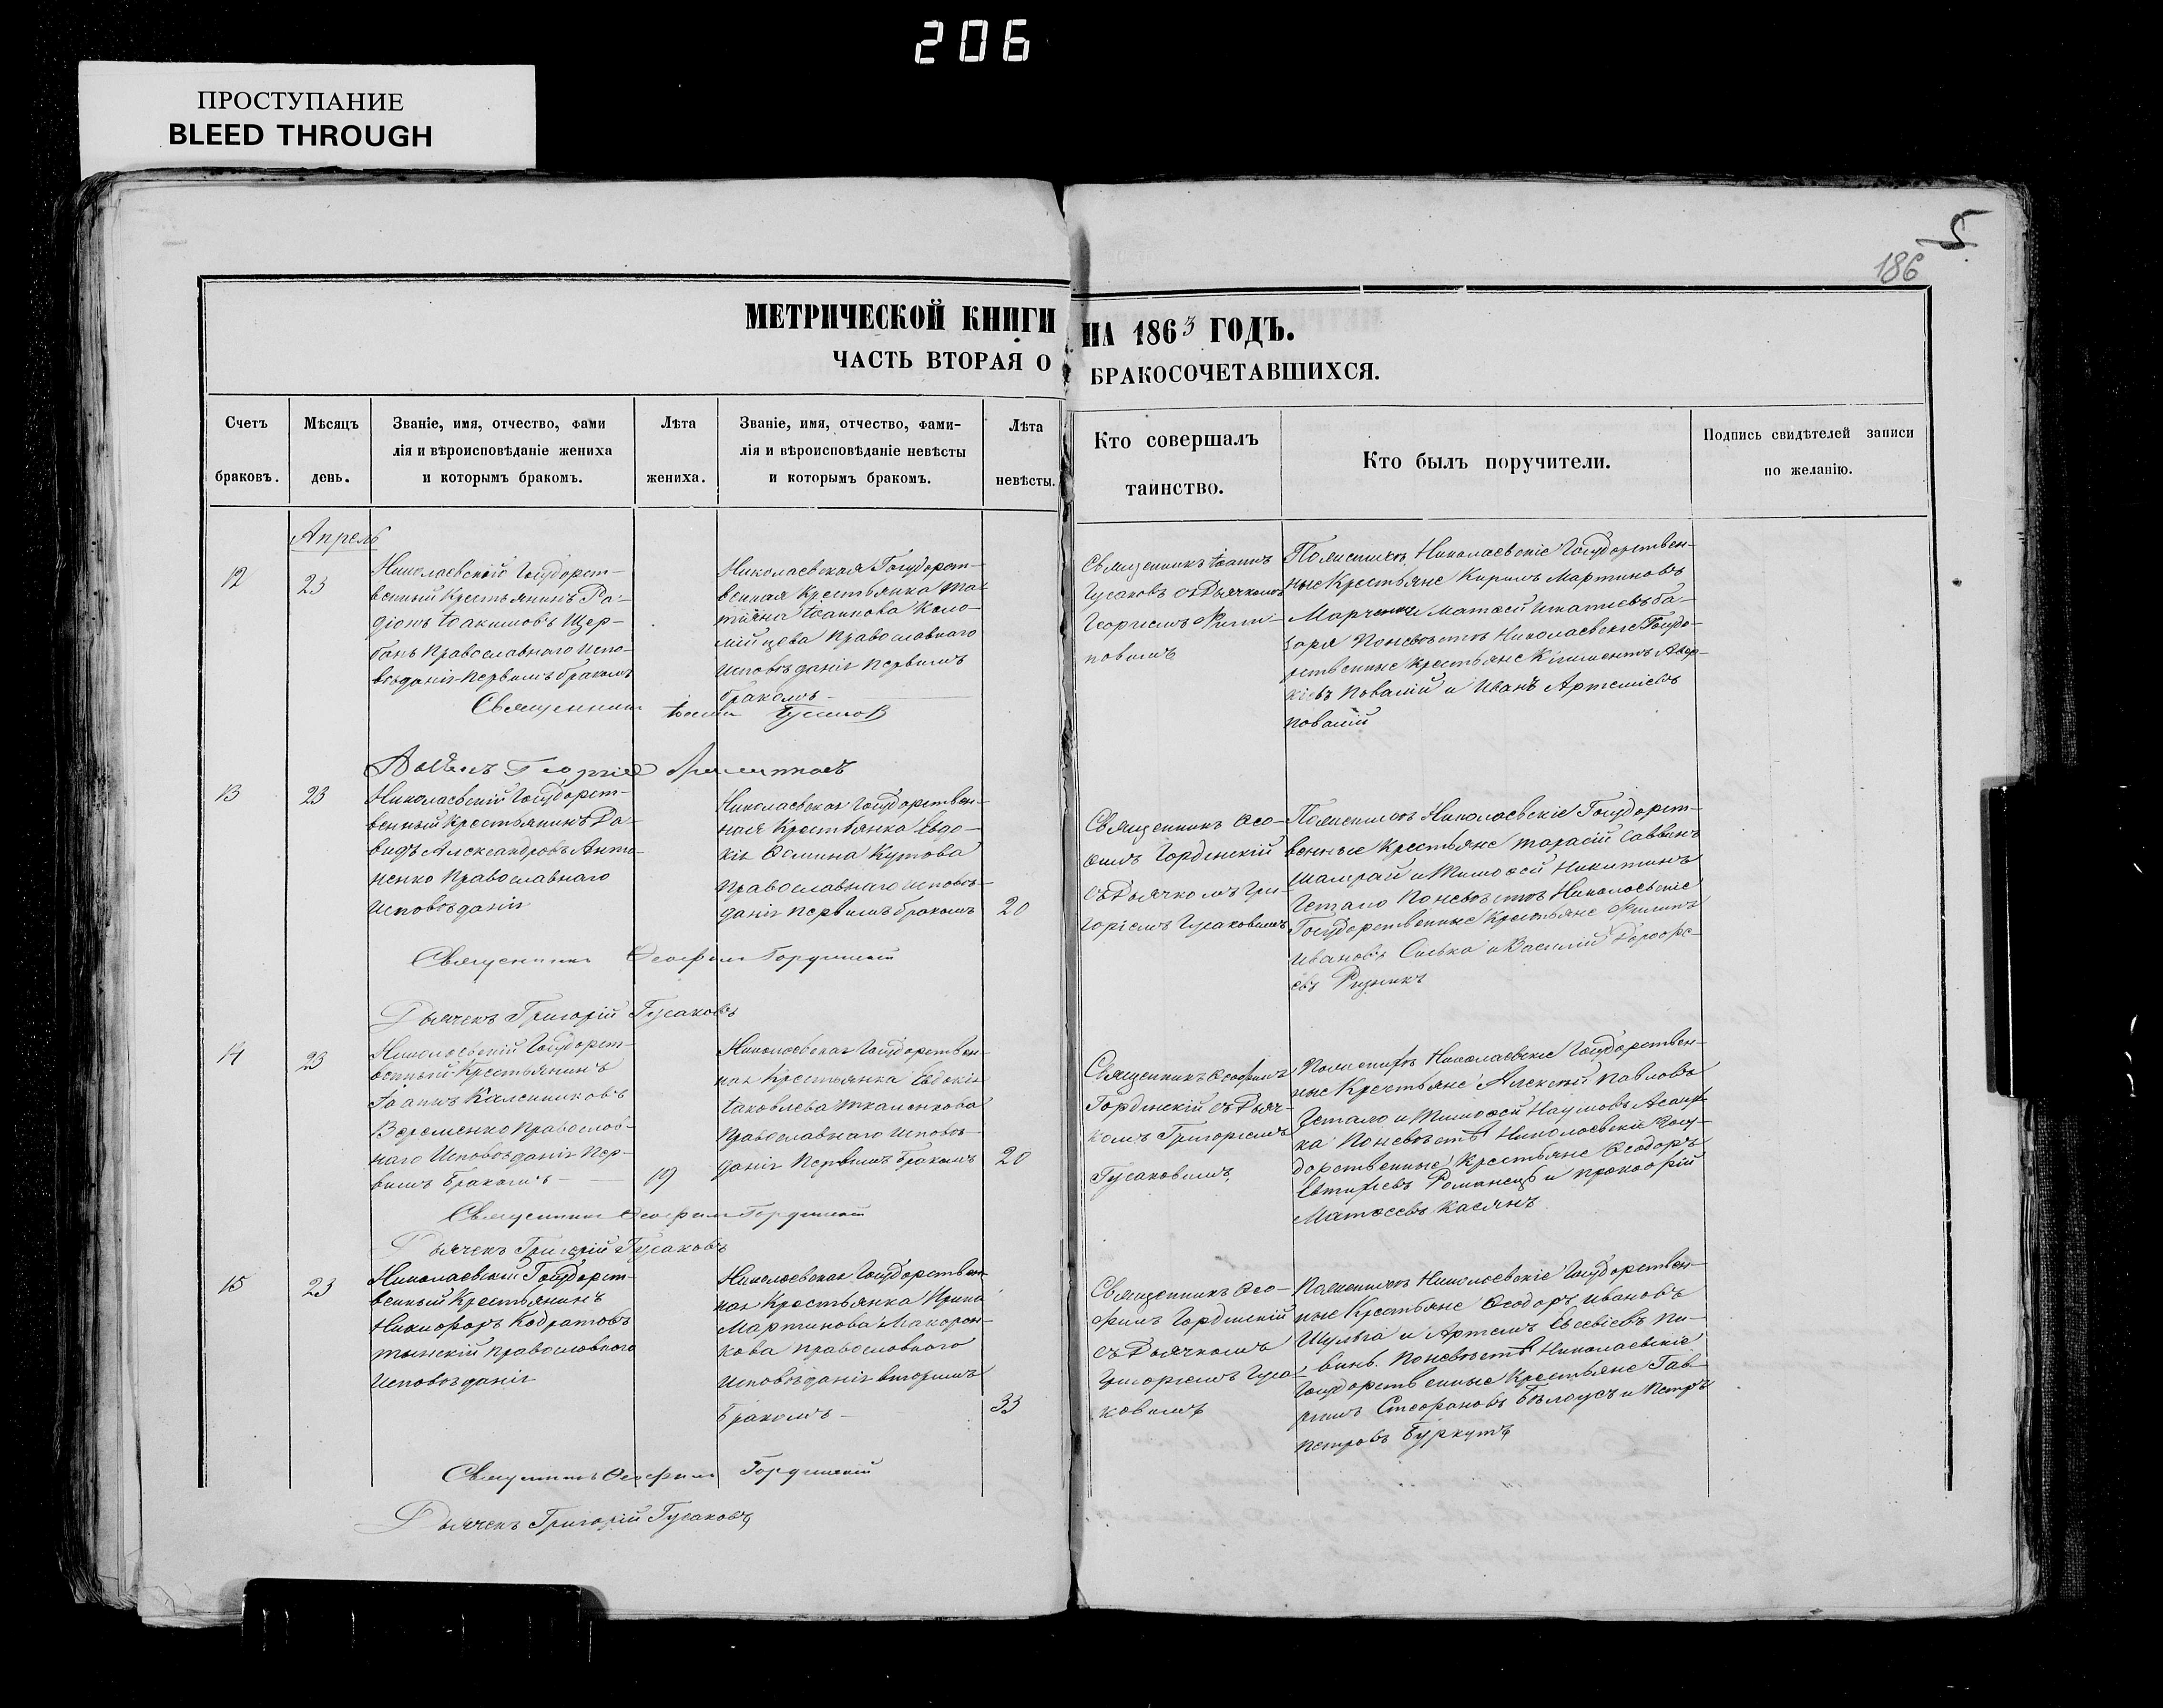 206
ПРОСТУПАНИЕ
BLEED THROUGH
5
186
МЕТРИЧЕСКОЙ КНИГИ НА 1863 ГОДЪ.
ЧАСТЬ ВТОРАЯ О БРАКОСОЧЕТАВШИХСЯ.
Счетъ браковъ.
Мѣсяцъ день.
Званіе, имя, отчество, фами
лія и вѣроисповѣданіе жениха
и которымъ бракомъ.
Лѣта жениха.
Званіе, имя, отчество, фами-
лія и вѣроисповѣданіе невѣсты
и которымъ бракомъ.
Лѣта невѣсты.
Кто совершалъ
таинство.
Кто былъ поручители.
Подпись свидѣтелей записи
по желанію.
Апрель
12
23
Николаевскій Государст-
венный Крестьянинъ Ра-
діонъ Іоакимовъ Щер-
банъ Православнаго испо-
вѣданія первымъ бракомъ
Николаевская Государст-
венная Крестьянка Та-
тіяна Іоаннова Коло-
мійцева Православнаго
исповѣданія первымъ
бракомъ
Священникъ Іоаннъ
Гусаковъ съ Дьячкомъ
Георгіемъ
По женихѣ Николаевскіе Государствен-
ные Крестьяне Кирилъ Мартиновъ
Марченко и Матѳей Игнатіевъ
По невѣстѣ Николаевскіе Госуда-
рственные Крестьяне Климентъ Авер-
кіевъ Повалій и Иванъ Артеміевъ
Повалій
Священникъ Іоаннъ Гусаковъ
13
23
Николаевскій Государст-
венный Крестьянинъ Да-
видъ Александровъ Анто-
ненко Православнаго
Исповѣданія
Николаевская Государствен-
ная Крестьянка Евдо-
кія Ѳомина Кутова
Православнаго исповѣ-
данія первымъ бракомъ
20
Священникъ Ѳео-
филъ Гординскій
съ Дьячкомъ Гри-
горіемъ Гусаковымъ
По женихѣ Николаевскіе Государст-
венные Крестьяне Тарасій Саввинъ
Шамрай и Тимоѳей Никитинъ
По невѣстѣ Николаевскіе
Государственные Крестьяне Филипъ
Ивановъ Силка и Василій Дорофе-
евъ Ризникъ
Священникъ Ѳеофилъ Гординскій
Дьячекъ Григорій Гусаковъ
14
23
Николаевскій Государст-
венный Крестьянинъ
Іоаннъ Калениковъ
Веременко Православ-
наго Исповѣданія Пер-
вымъ Бракомъ
19
Николаевская Государствен-
ная Крестьянка Евдокія
Іаковлева Ткаченкова
Православнаго Исповѣ-
данія Первымъ Бракомъ
20
Священникъ Ѳеофилъ
Гординскій съ Дьяч-
комъ Григоріемъ
Гусаковымъ
По женихѣ Николаевскіе Государствен-
ные Крестьяне Алексѣй Павловъ
и Тимоѳей Наумовъ
По невѣстѣ Николаевскіе Госу-
дарственные Крестьяне Ѳеодоръ
Евтихіевъ Романецъ и Прокофій
Матѳеевъ Касянъ
Священникъ Ѳеофилъ Гординскій
Дьячекъ Григорій Гусаковъ
15
23
Николаевскій Государст-
венный Крестьянинъ
Никифоръ Кодратовъ
Православнаго
Исповѣданія
Николаевская Государствен-
ная Крестьянка Ирина
Мартинова Макарен-
кова Православнаго
Исповѣданія вторымъ
Бракомъ
33
Священникъ Ѳео-
филъ Гординскій
съ Дьячкомъ
Григоріемъ Гуса-
ковымъ
По женихѣ Николаевскіе Государствен-
ные Крестьяне Ѳеодоръ Ивановъ
Шульга и Артемъ Евсевіевъ
По невѣстѣ Николаевскіе
Государственные Крестьяне Гав-
Стефановъ Бѣлоусъ и Петръ
Петровъ Буркутъ
Священникъ Ѳеофилъ Гординскій
Дьячекъ Григорій Гусаковъ